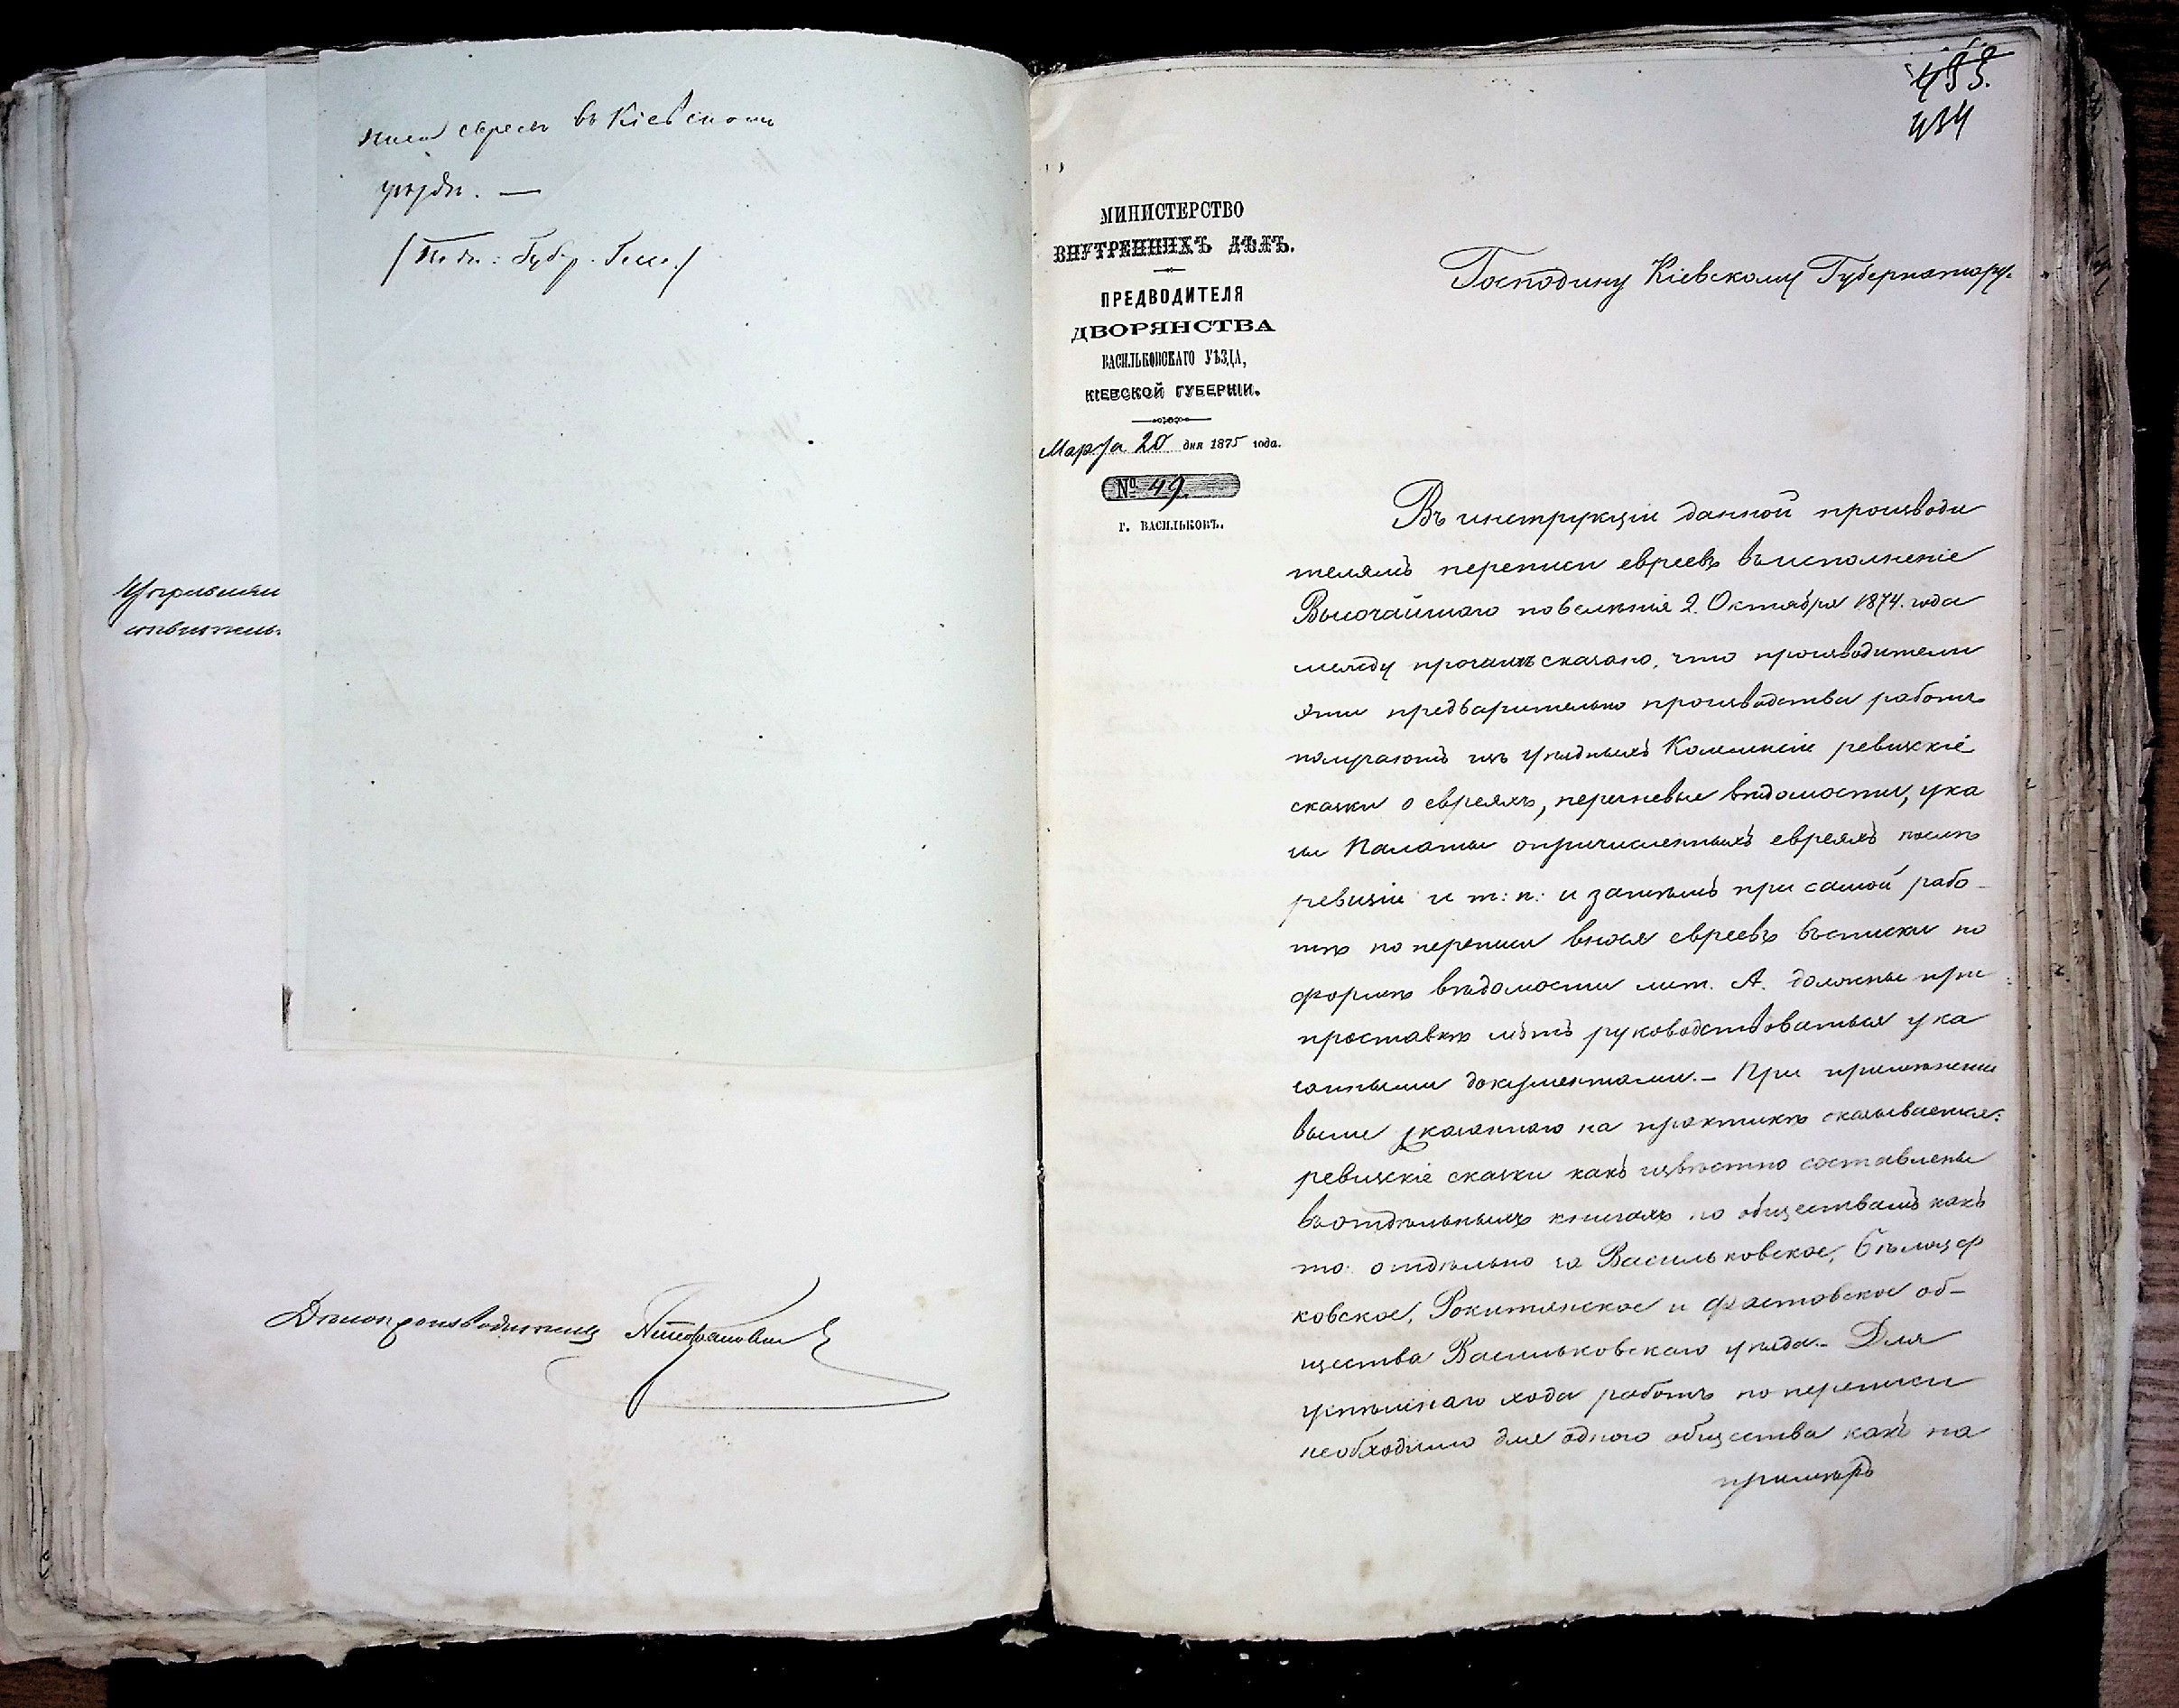 евреевъ въ Кіевскомъ
уѣздѣ. —
Управляющій
Дѣлопроизводитель
433.
434
МИНИСТЕРСТВО
ВНУТРЕННИХЪ ДѢЛЪ.
ПРЕДВОДИТЕЛЯ
ДВОРЯНСТВА
ВАСИЛЬКОВСКАГО УѢЗДА,
КІЕВСКОЙ ГУБЕРНІИ.
Марта 20 дня 1875 года.
№ 49.
Г. ВАСИЛЬКОВЪ.
Господину Кіевскому Губернатору.
Въ инструкціи данной производи
телямъ переписи евреевъ въ исполненіе
Высочайшаго повелѣнія 2. Октября 1874. года
между прочимъ сказано, что производители
эти предварительно производства работъ
получаютъ изъ уѣздныхъ Коммисій ревизскіе
сказки о евреяхъ, перечневые вѣдомости, ука
зы Палаты о причисленныхъ евреяхъ послѣ
ревизіи и т: п: и затѣмъ при самой рабо-
тѣ по переписи внося евреевъ въ списки по
формѣ вѣдомости лит. А. должны при
проставкѣ лѣтъ руководствоваться ука
занными документами. – При примѣненіи
выше указаннаго на практикѣ оказывается:
ревизскіе сказки какъ извѣстно составлены
въ отдѣльныхъ книгахъ по обществамъ какъ
то: отдѣльно за Васильковское, Бѣлоцер
ковское, Рокитянское и Фастовское об-
щества Васильковскаго уѣзда. – Для
успѣшнаго хода работъ по переписи
необходимо для одного общества какъ на
примѣръ